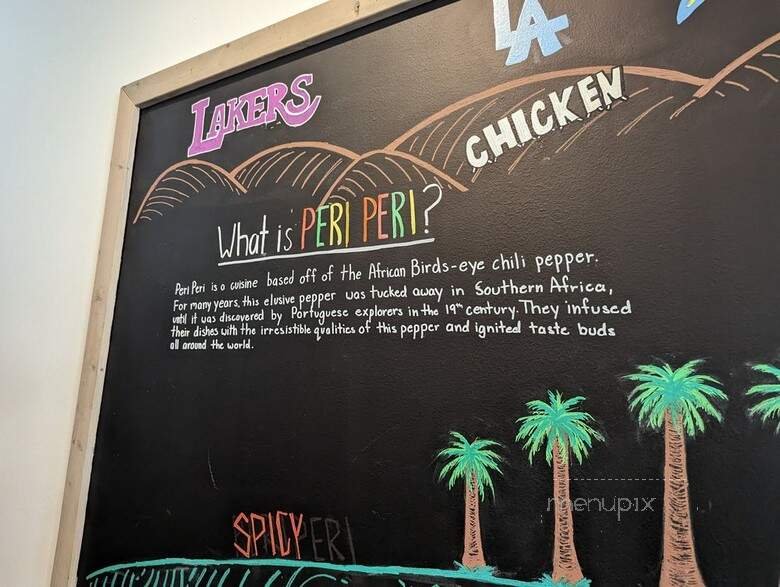 LA
LAKERS
CHICKEN
What is PERI PERI?
Peri Peri is a cuisine based off of the African Birds-eye chili pepper.
For many years, this elusive pepper was tucked away in Southern Africa,
until it was discovered by Portuguese explorers in the 19th century. They infused
their dishes with the irresistible qualities of this pepper and ignited taste buds
all around the world.
menupix
SPICY PERI